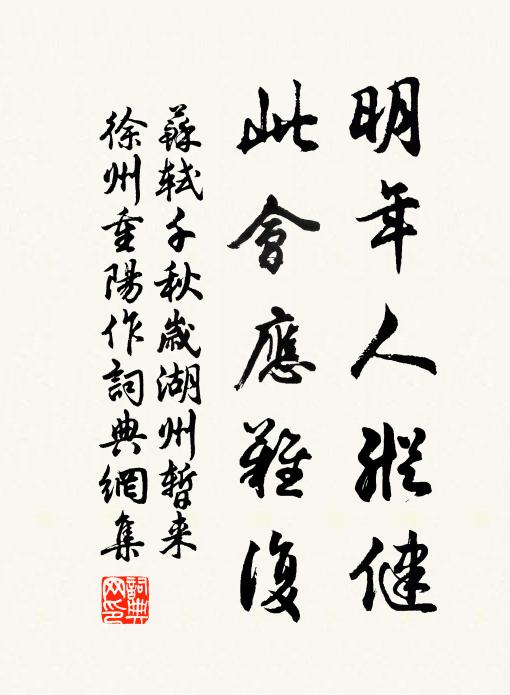 明年人縱健
此會應難復
蘇軾千秋歲湖州暫来
徐州重陽作詞典網集
詞典
网印